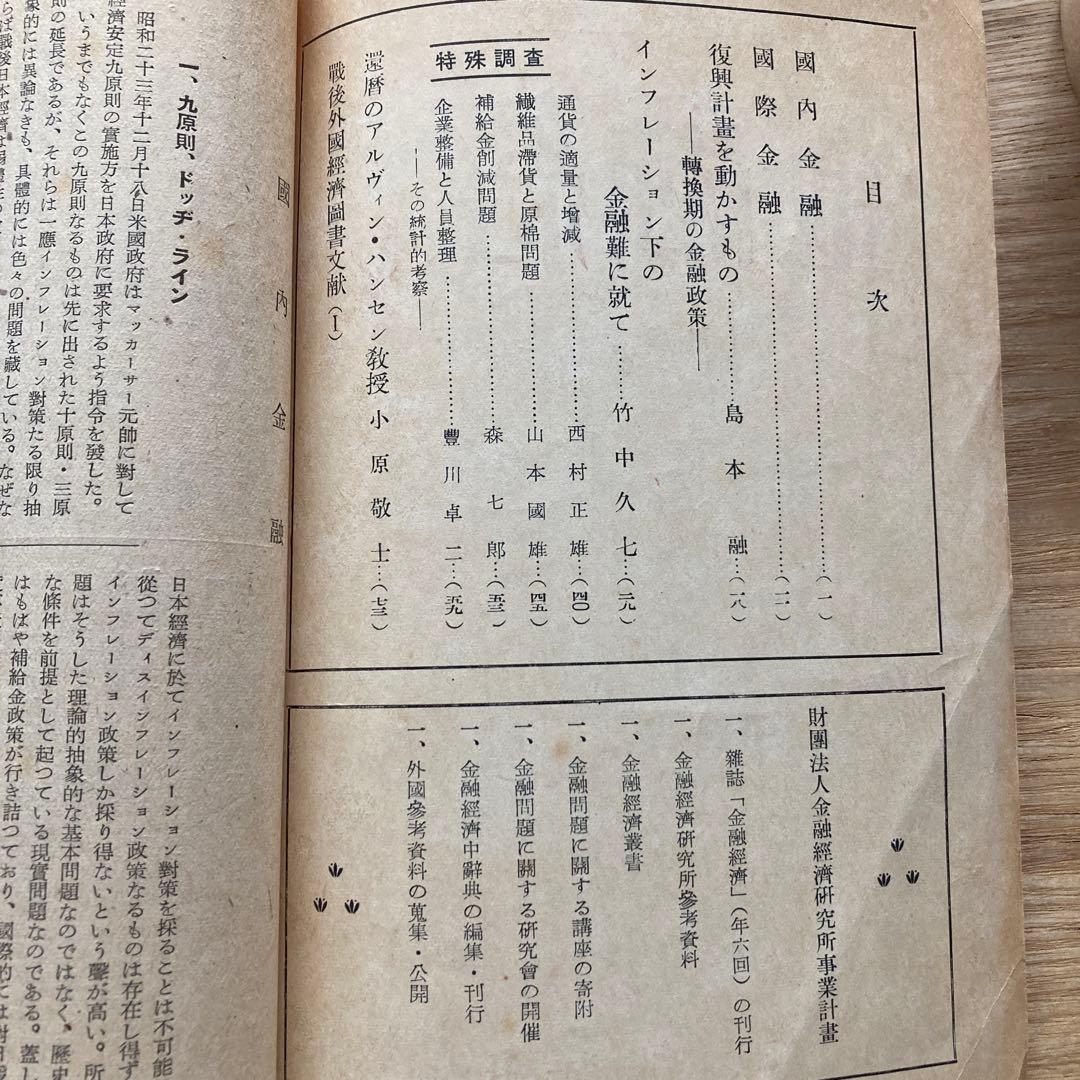 目次
國內金融……(一)
國際金融……(一一)
復興計畫を動かすもの……島本融…(一八)
――轉換期の金融政策――
インフレーション下の
金融難に就て……竹中久七…(二九)
特殊調查
通貨の適量と增減……西村正雄…(四〇)
纎維品滯貨と原棉問題……山本國雄…(四五)
補給金削減問題……森七郞…(五三)
企業整備と人員整理……豐川卓二…(五九)
――その統計的考察――
還曆のアルヴィン・ハンセン敎授 小原敬士…(七三)
戰後外國經濟圖書文献(I)
財團法人金融經濟硏究所事業計畫
一、雜誌「金融經濟」(年六回)の刊行
一、金融經濟硏究所參考資料
一、金融經濟叢書
一、金融問題に關する講座の寄附
一、金融問題に關する硏究會の開催
一、金融經濟中辭典の編集・刊行
一、外國參考資料の蒐集・公開
國內金融
一、九原則、ドッヂ・ライン
昭和二十三年十二月十八日米國政府はマッカーサー元帥に對して
經濟安定九原則の實施方を日本政府に要求するよう指令を發した。
いうまでもなくこの九原則なるものは先に出された十原則・三原
則の延長であるが、それらは一應インフレーション對策たる限り抽
象的には異論なきも、具體的には色々の問題を藏している。なぜな
らば戰後日本經濟は
日本經濟に於てインフレーション對策を採ることは不可能
從つてディスインフレーション政策なるものは存在し得ず
インフレーション政策しか採り得ないという聲が高い。所
題はそうした理論的抽象的な基本問題なのではなく、歷史
な條件を前提として起つている現實問題なのである。蓋し
はもはや補給金政策が行き詰つており、國際的には對日